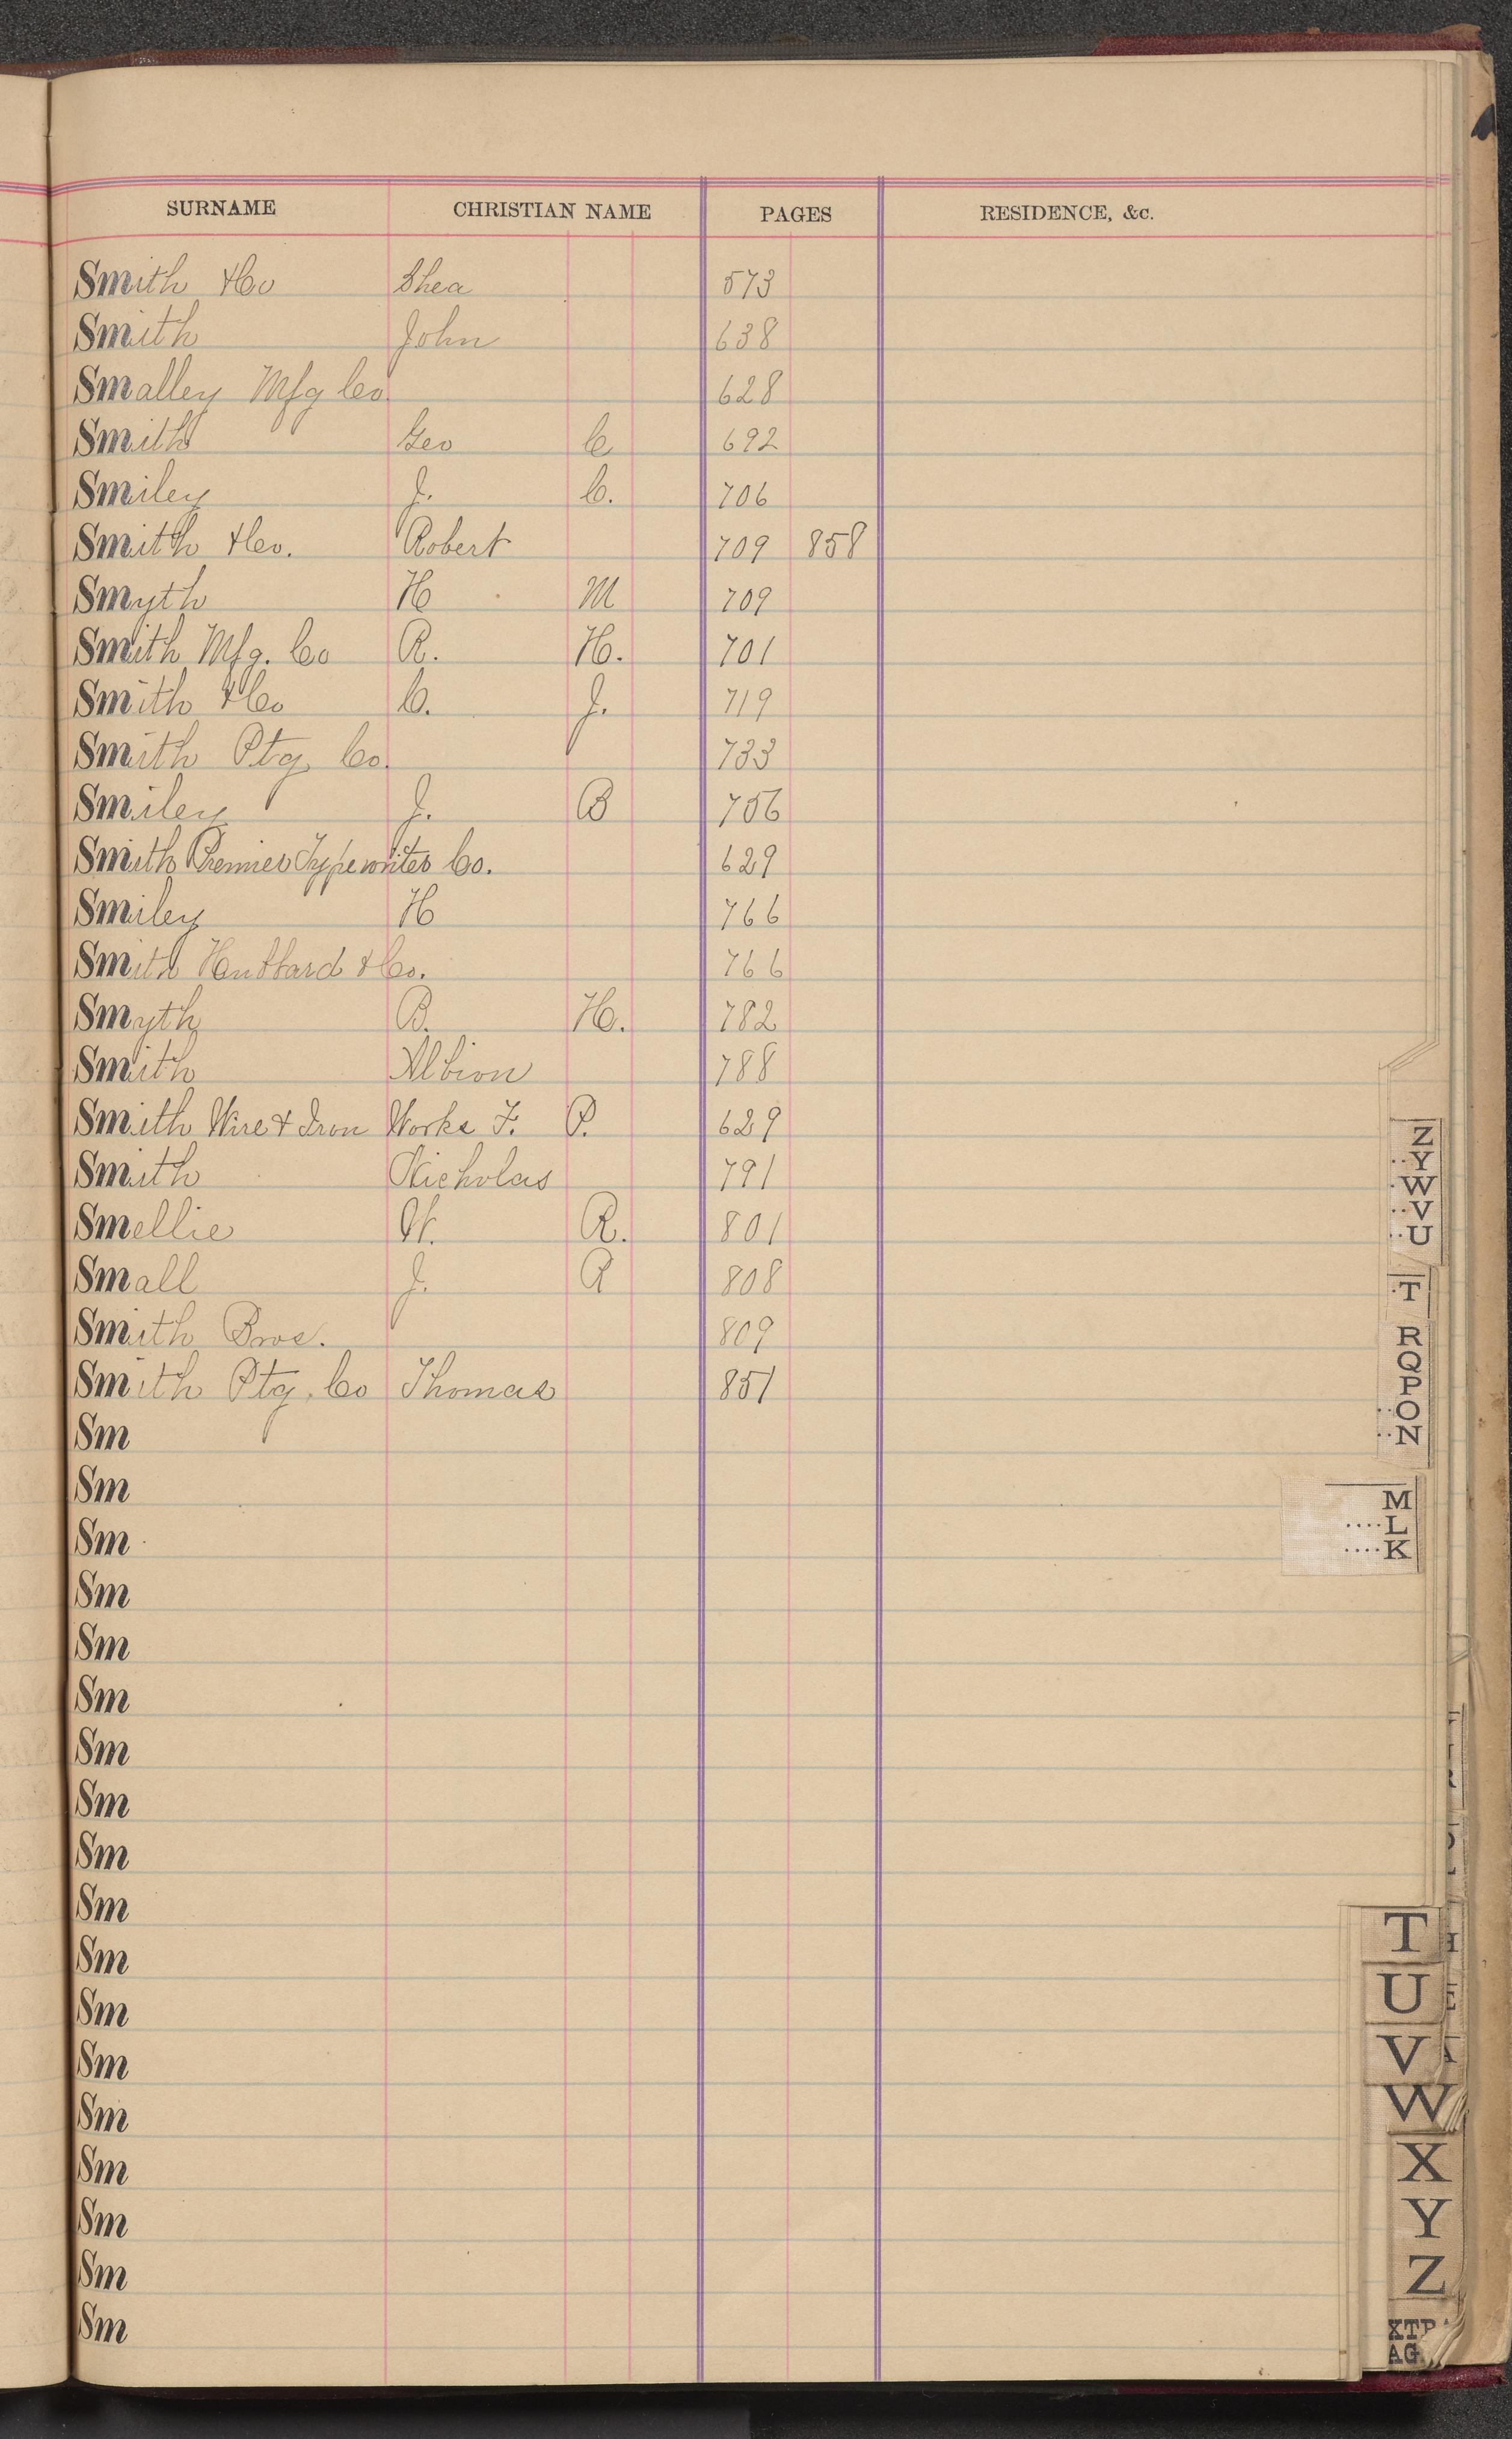 SURNAME CHRISTIAN NAME PAGES RESIDENCE, &c.
Smith & Co Shea 573
Smith John 638
Smalley Mfg Co. 628
Smith Geo C 692
Smiley J. C. 706
Smith & Co. Robert 709 858
Smyth H M 709
Smith Mfg. Co R. H. 701
Smith & Co C. J. 719
Smith Ptg Co. 733
Smiley J. B 756
Smith Premier Typewriter Co. 629
Smiley H 766
Smith & Co. 766
Smyth B. H. 782
Smith Albion 788
Smith Wire & Iron Works F. P. 629
Smith Nicholas 791
Smellie W. R. 801
Small J. R 808
Smith Bros. 809
Smith Ptg. Co Thomas 851
Sm
Sm
Sm
Sm
Sm
Sm
Sm
Sm
Sm
Sm
Sm
Sm
Sm
Sm
Sm
Sm
Sm
Sm
Z
Y
W
V
U
T
R
Q
P
O
N
M
L
K
T
U
V
W
X
Y
Z